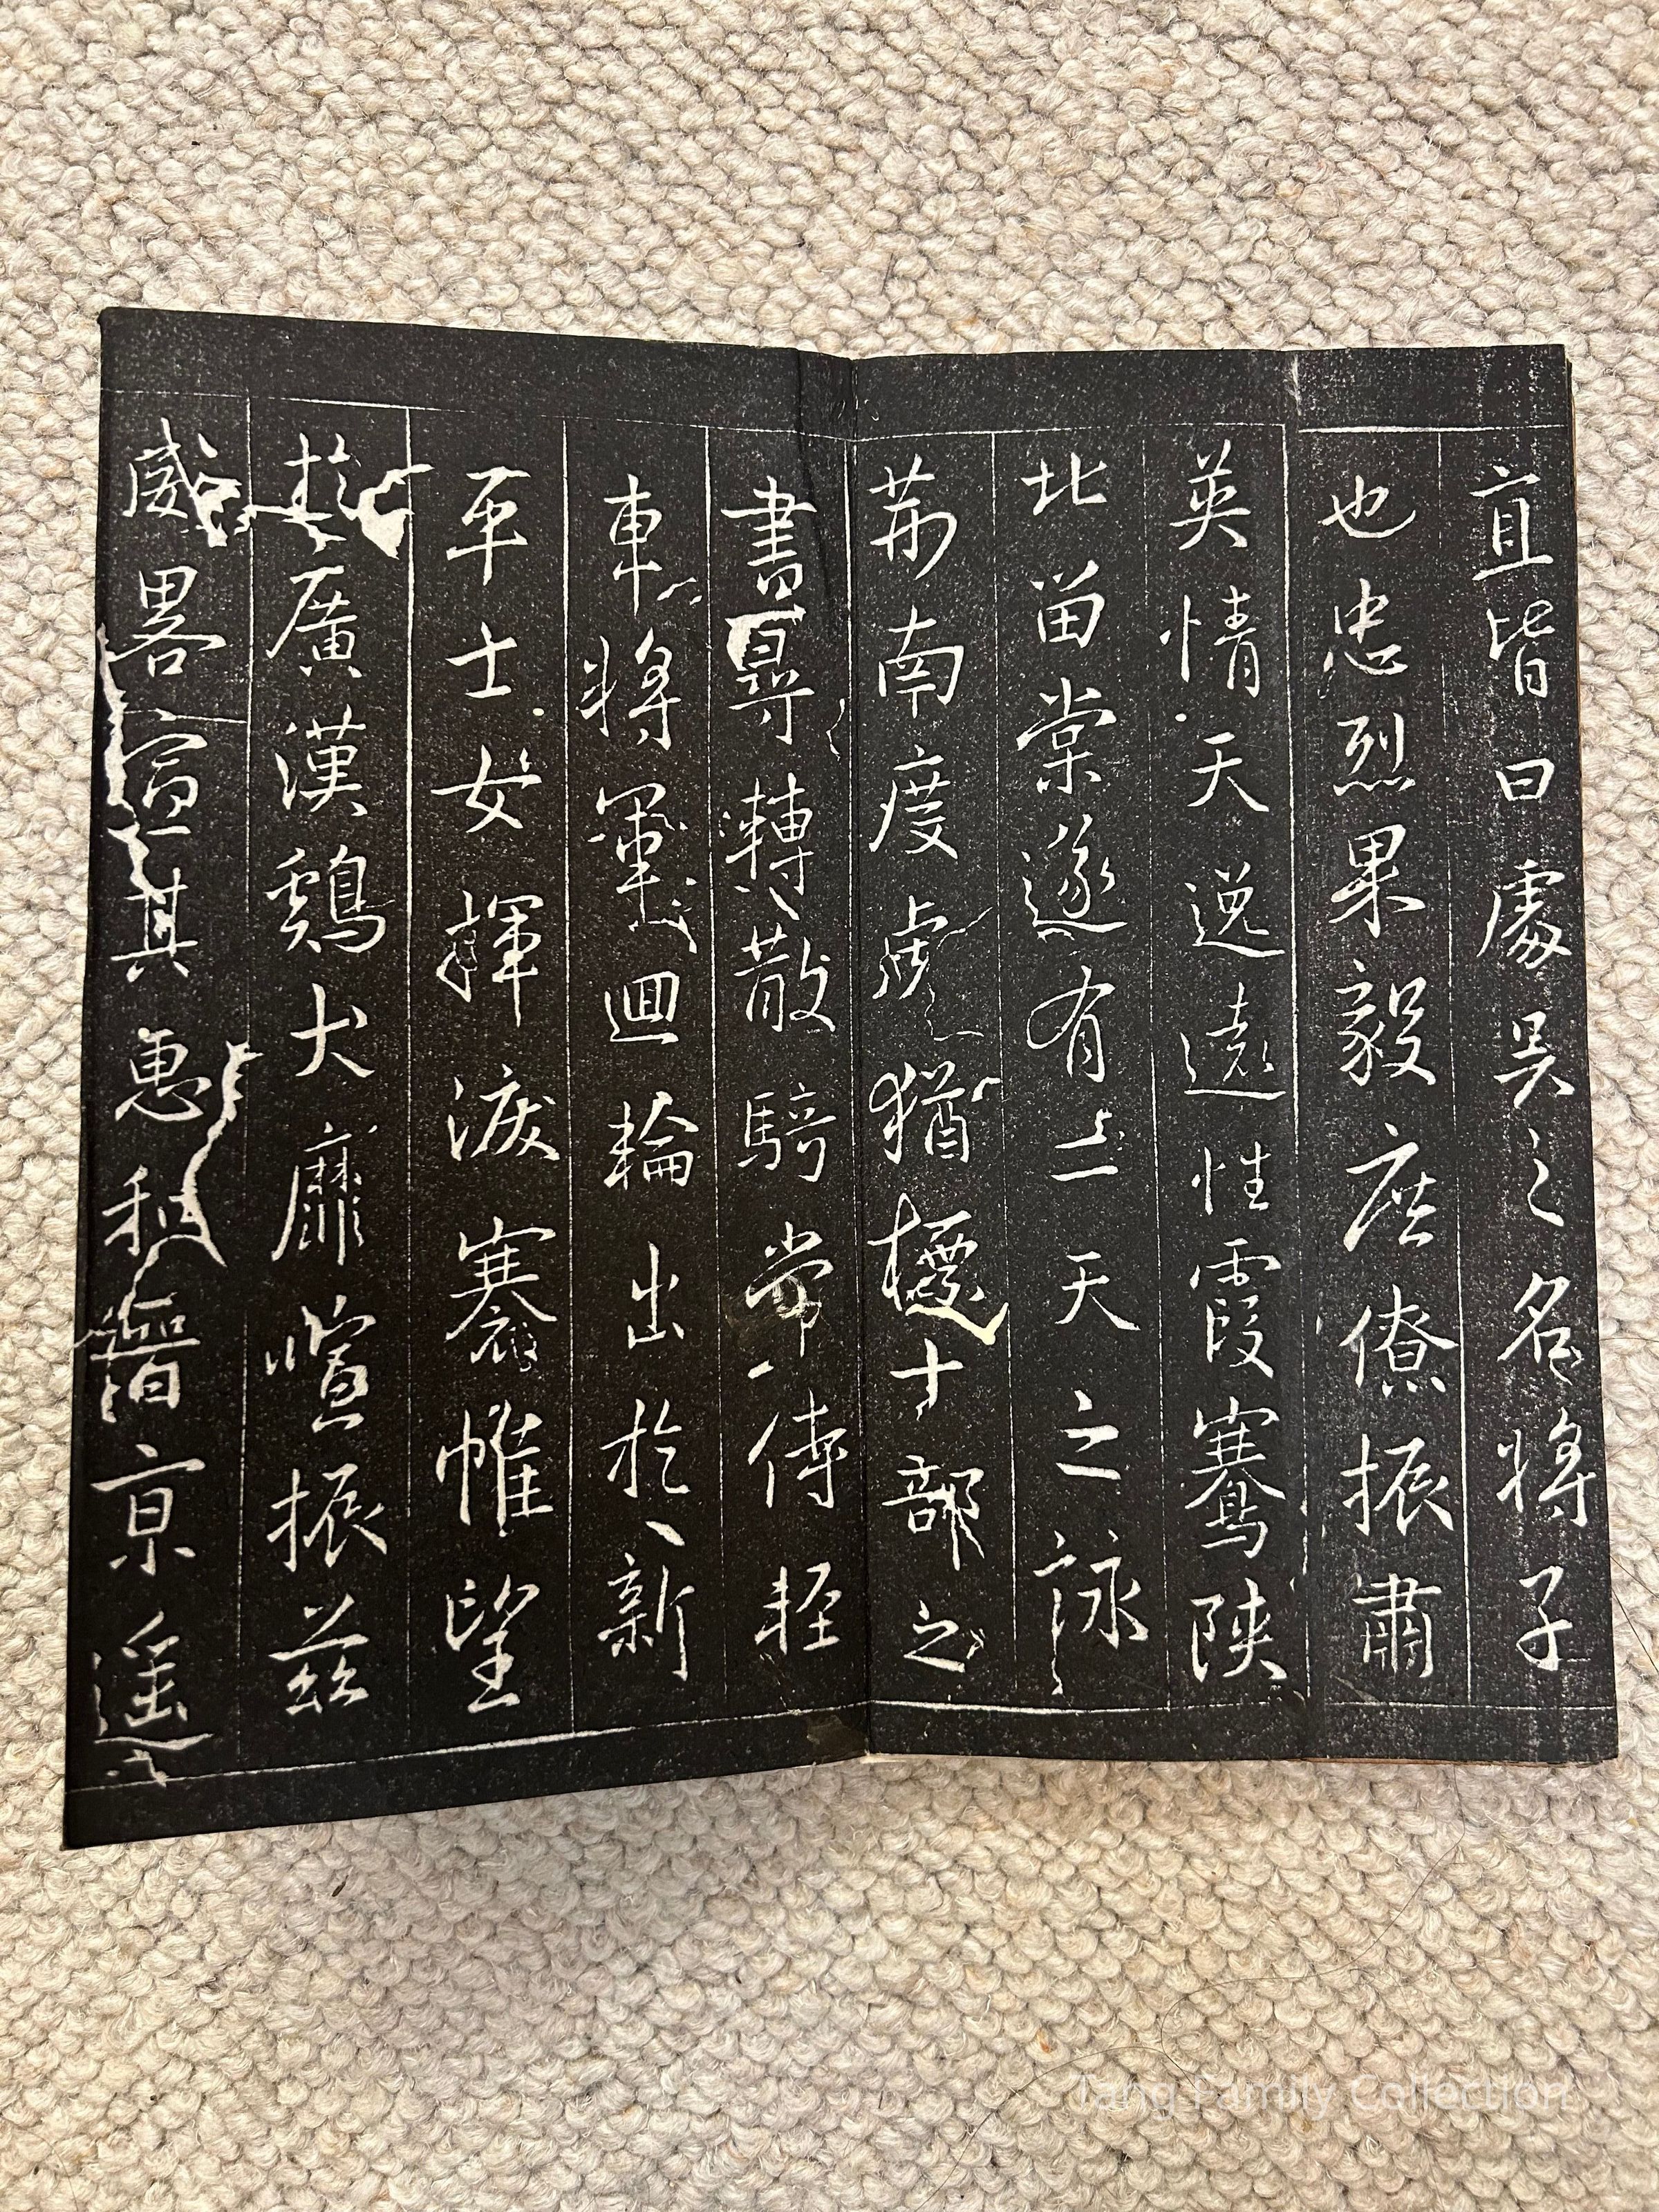 宜皆曰處吳之名將子
也忠烈果毅庶僚振肅
英情天逸遠性霞騫陝
北留棠遂有二天之詠
荊南度虎猶標十部之
書尋轉散騎常侍輕
車將軍迴輪出於新
平士女揮淚褰帷望
於廣漢鷄犬靡喧振茲
威畧宣其惠和晉京遥
Tang Family Collection